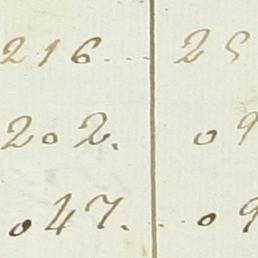 216... 25
202. 09
047... 09